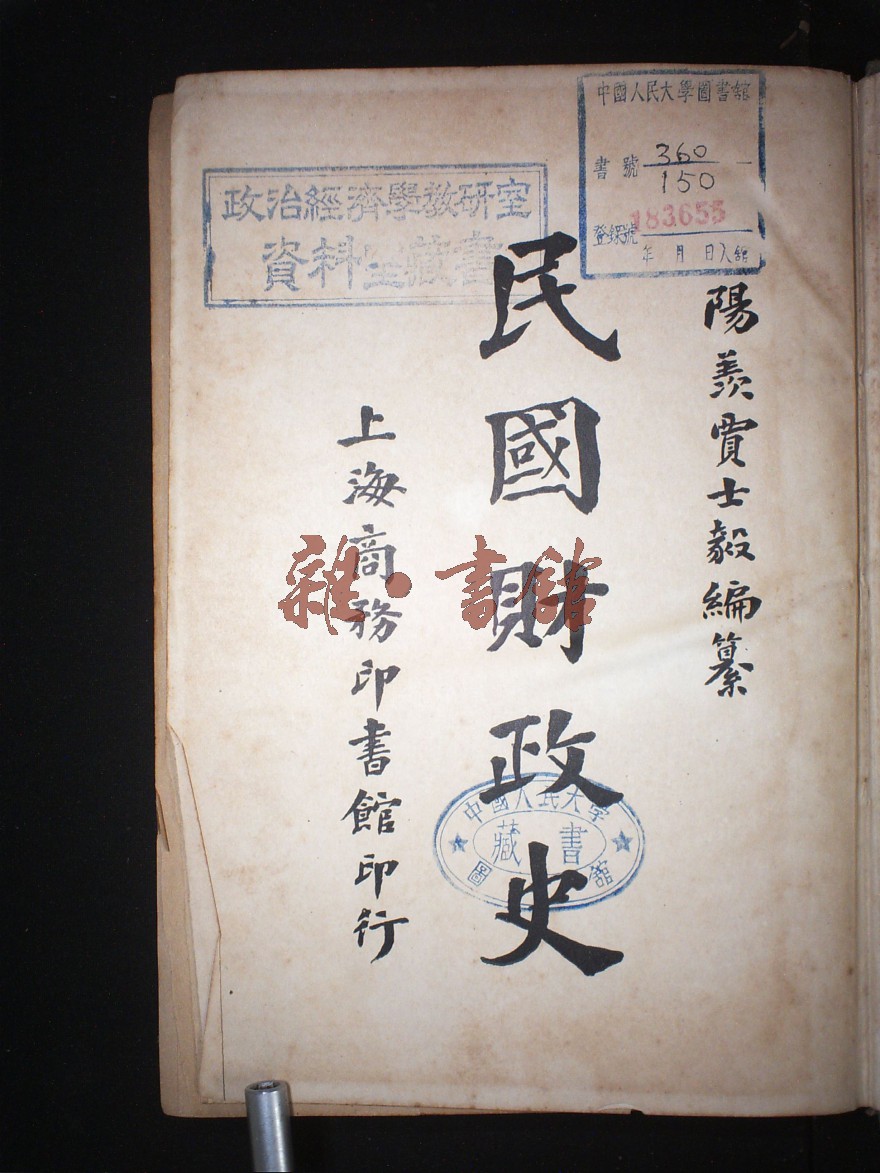 中國人民大學圖書館
書號 360
150
登錄號 183655
年 月 日入館
政治經濟學教研室
資料室藏書
陽羨賈士毅編纂
民國財政史
上海商務印書館印行
雜·書館
中國人民大学
藏書
圖館